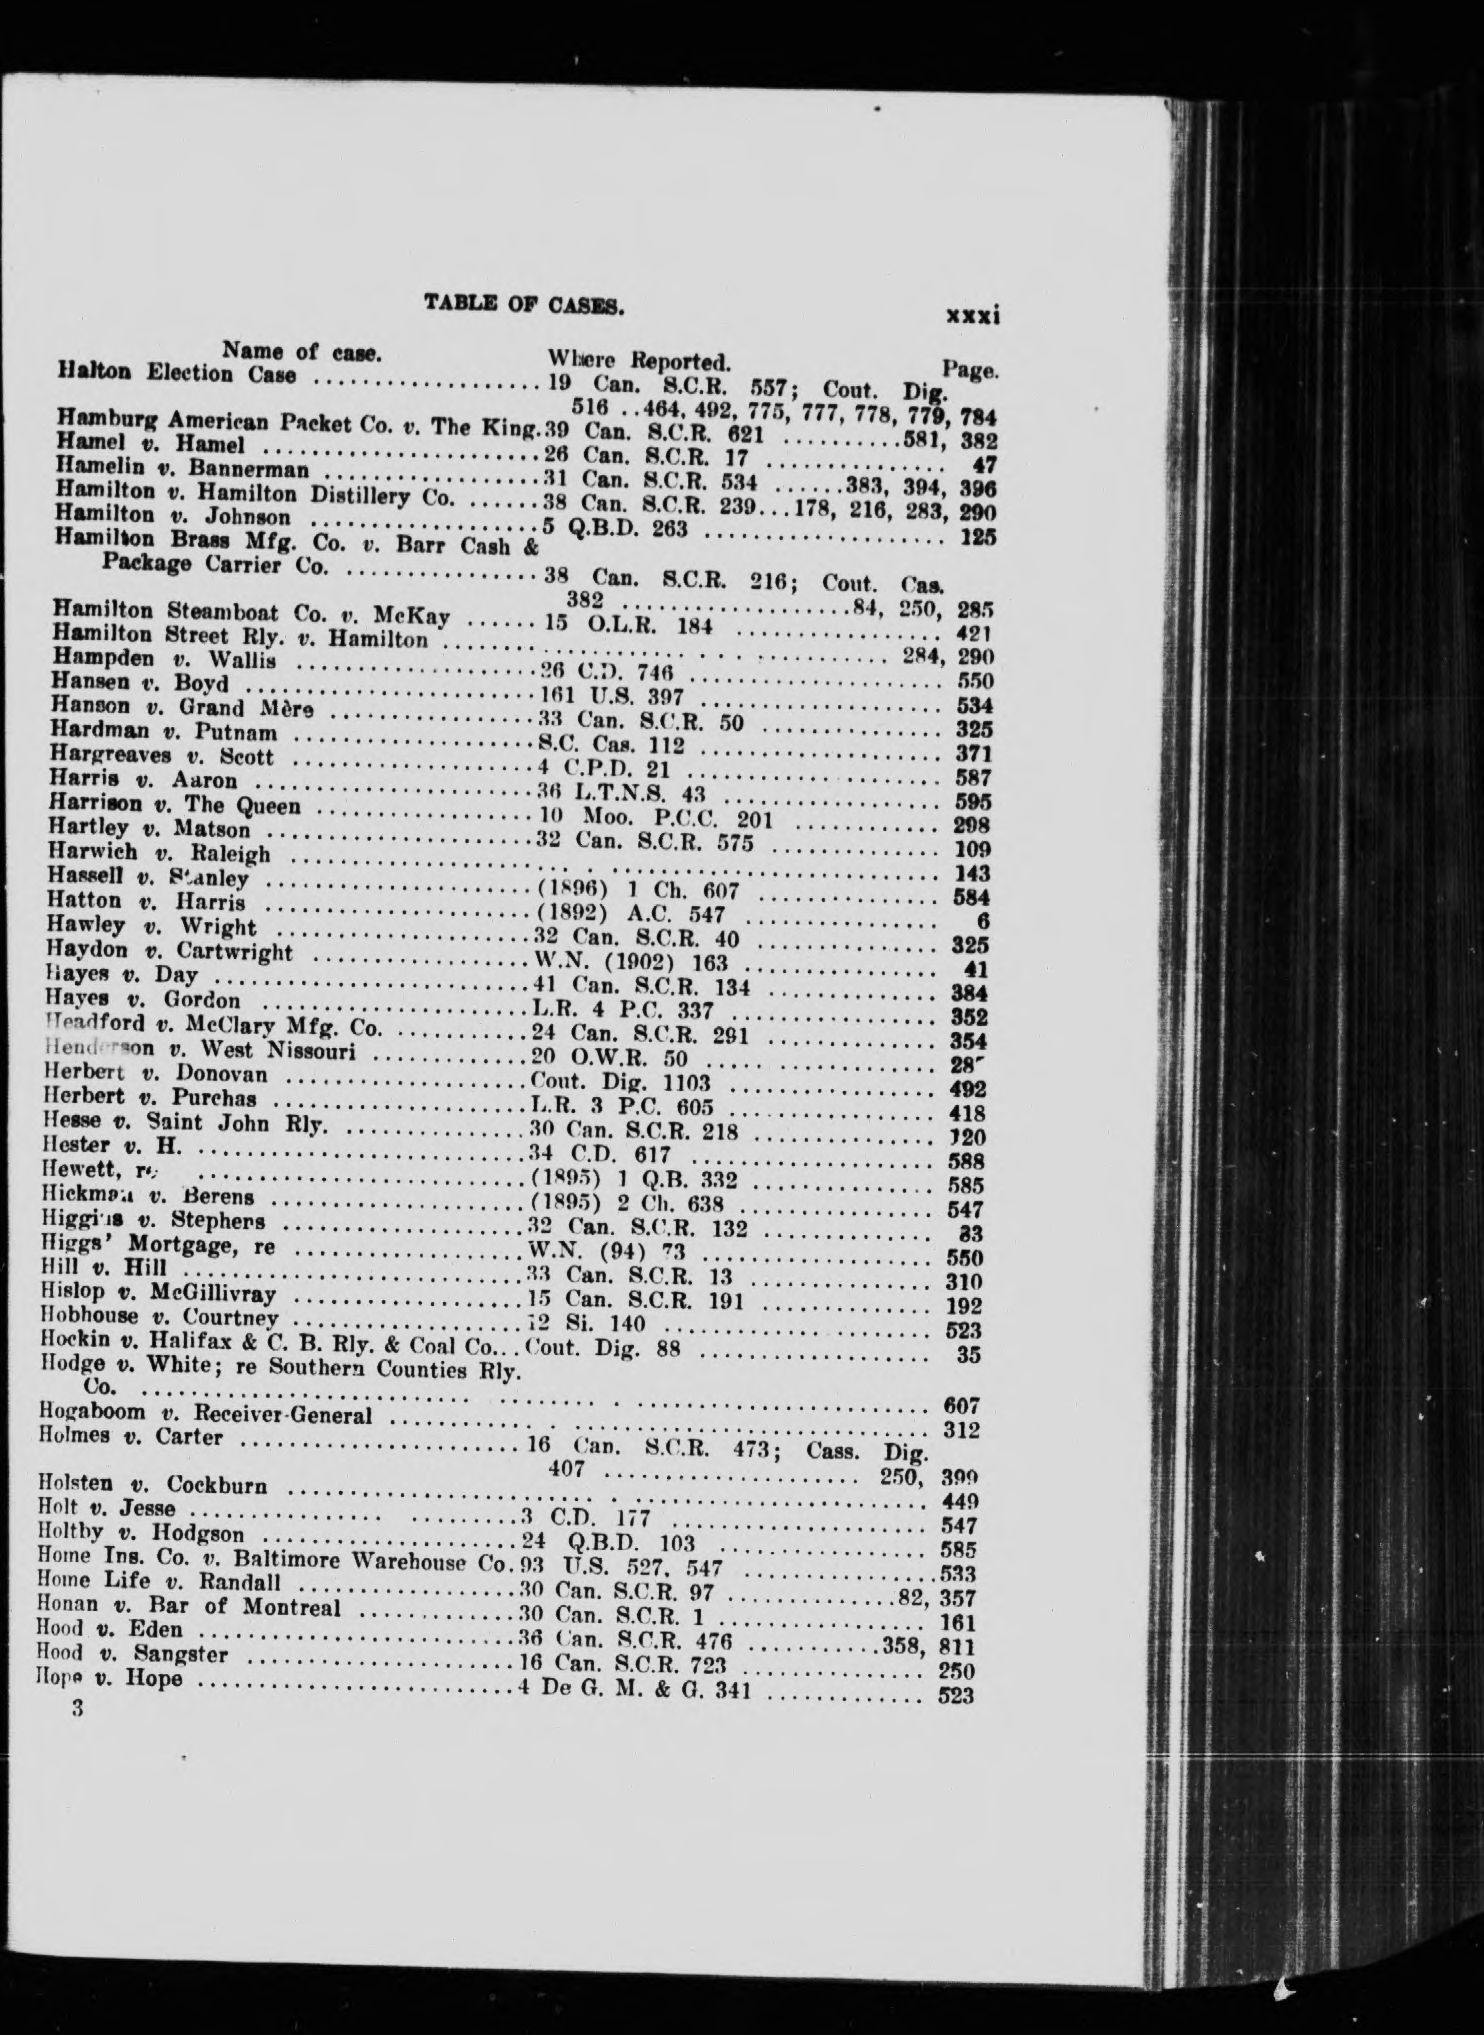 TABLE OF CASES. xxxi
Name of case. Where Reported. Page.
Halton Election Case .................. 19 Can. S.C.R. 557; Cout. Dig.
516 ..464, 492, 775, 777, 778, 779, 784
Hamburg American Packet Co. v. The King.39 Can. S.C.R. 621 ..........581, 382
Hamel v. Hamel ......................26 Can. S.C.R. 17 ............... 47
Hamelin v. Bannerman ..................31 Can. S.C.R. 534 ......383, 394, 396
Hamilton v. Hamilton Distillery Co. ......38 Can. S.C.R. 239...178, 216, 283, 290
Hamilton v. Johnson ...................5 Q.B.D. 263 .................... 125
Hamilton Brass Mfg. Co. v. Barr Cash &
Package Carrier Co. ................38 Can. S.C.R. 216; Cout. Cas.
382 ...................84, 250, 285
Hamilton Steamboat Co. v. McKay ...... 15 O.L.R. 184 ................. 421
Hamilton Street Rly. v. Hamilton ........................... 284, 290
Hampden v. Wallis ....................26 C.D. 746 ..................... 550
Hansen v. Boyd ........................161 U.S. 397 .................... 534
Hanson v. Grand Mère .................33 Can. S.C.R. 50 ............... 325
Hardman v. Putnam ....................S.C. Cas. 112 .................... 371
Hargreaves v. Scott ....................4 C.P.D. 21 ..................... 587
Harris v. Aaron .......................36 L.T.N.S. 43 .................. 595
Harrison v. The Queen .................. 10 Moo. P.C.C. 201 ............ 298
Hartley v. Matson ......................32 Can. S.C.R. 575 .............. 109
Harwich v. Raleigh ........................................ 143
Hassell v. Stanley ......................(1896) 1 Ch. 607 ............... 584
Hatton v. Harris ......................(1892) A.C. 547 ................ 6
Hawley v. Wright .....................32 Can. S.C.R. 40 ............... 325
Haydon v. Cartwright ..................W.N. (1902) 163 ................ 41
Hayes v. Day ..........................41 Can. S.C.R. 134 .............. 384
Hayes v. Gordon ......................L.R. 4 P.C. 337 ................. 352
Headford v. McClary Mfg. Co. ...........24 Can. S.C.R. 291 .............. 354
Henderson v. West Nissouri .............20 O.W.R. 50 ................... 28
Herbert v. Donovan ....................Cout. Dig. 1103 ................. 492
Herbert v. Purchas .....................L.R. 3 P.C. 605 ................. 418
Hesse v. Saint John Rly. ...............30 Can. S.C.R. 218 ............... 120
Hester v. H. ...........................34 C.D. 617 .................... 588
Hewett, re ...........................(1895) 1 Q.B. 332 ............... 585
Hickman v. Berens .....................(1895) 2 Ch. 638 ................ 547
Higgins v. Stephens ....................32 Can. S.C.R. 132 .............. 33
Higgs' Mortgage, re ...................W.N. (94) 73 ................... 550
Hill v. Hill ............................33 Can. S.C.R. 13 ............... 310
Hislop v. McGillivray ...................15 Can. S.C.R. 191 .............. 192
Hobhouse v. Courtney ...................12 Si. 140 ...................... 523
Hockin v. Halifax & C. B. Rly. & Coal Co...Cout. Dig. 88 ................... 35
Hodge v. White; re Southern Counties Rly.
Co. ........................................ 607
Hogaboom v. Receiver-General ........................................ 312
Holmes v. Carter ....................... 16 Can. S.C.R. 473; Cass. Dig.
407 ..................... 250, 399
Holsten v. Cockburn ........................................ 449
Holt v. Jesse .........................3 C.D. 177 ..................... 547
Holtby v. Hodgson .....................24 Q.B.D. 103 ................. 585
Home Ins. Co. v. Baltimore Warehouse Co.93 U.S. 527, 547 ................533
Home Life v. Randall ..................30 Can. S.C.R. 97 ..............82, 357
Honan v. Bar of Montreal .............30 Can. S.C.R. 1 ................. 161
Hood v. Eden ..........................36 Can. S.C.R. 476 ...........358, 811
Hood v. Sangster ......................16 Can. S.C.R. 723 ............... 250
Hope v. Hope ..........................4 De G. M. & G. 341 ............. 523
3